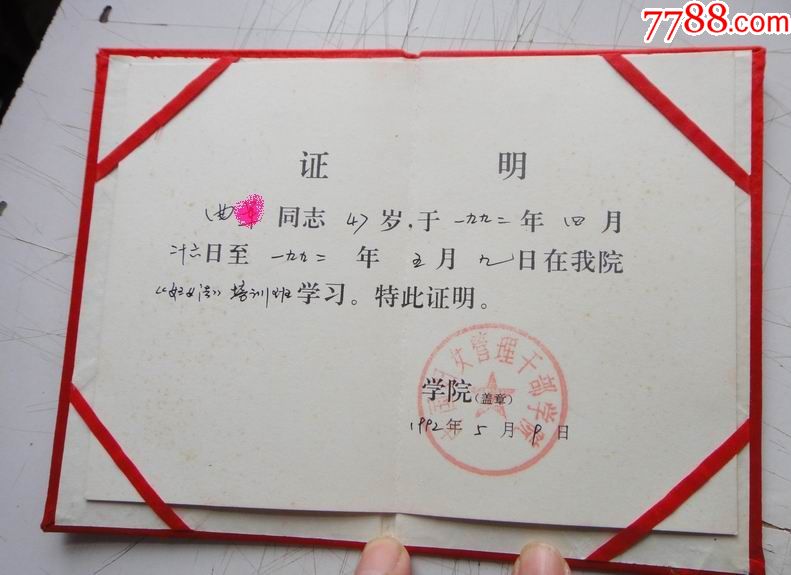 7788.com
证 明
曲 同志 47 岁,于 一九九二 年 四 月
廿六日至 一九九二 年 五 月 九 日在我院
“妇女法” 培训班 学习。特此证明。
女管理干部学院
学院(盖章)
1992年 5 月 9 日